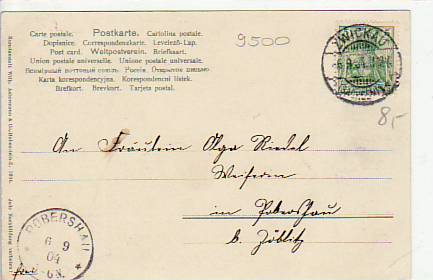 Carte postale. Postkarte. Cartolina postale
Dopisnice. Correspondenzkarte. Levelező-Lap.
Post card. Weltpostverein. Briefkaart.
Union postale universelle. Unione postale universale.
Всемірный почтовый союзъ. Россія. Открытое письмо.
Karta korespondencyjna. Korespondenční lístek.
Brefkort. Brevkort. Tarjeta postal.
9500
ZWICKAU
8,-
An Fräulein Olga Riedel
in Pobershau
b. Zöblitz
POBERSHAU
6 9
04